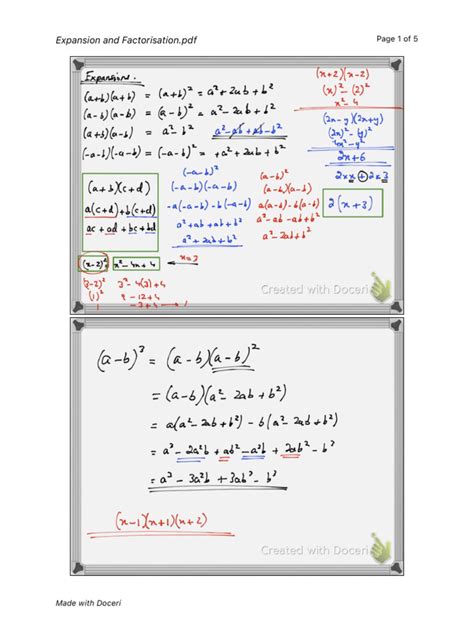 Expansion and Factorisation.pdf
Page 1 of 5
Expansion.
(a+b)(a+b) = (a+b)² = a²+2ab+b²
(a-b)(a-b) = (a-b)² = a²-2ab+b²
(a+b)(a-b) = a²-b²
a²-ab+ab-b²
(-a-b)(-a-b) = (-a-b)² = +a²+2ab+b²
(x+2)(x-2)
(x)² - (2)²
x²-4
(2x-y)(2x+y)
(2x)² - (y)²
4x²-y²
2x+6
2×x + 2×3
2(x+3)
(a+b)(c+d)
a(c+d)+b(c+d)
ac + ad + bc + bd
(-a-b)²
(-a-b)(-a-b)
-a(-a-b) -b(-a-b)
a²+ab+ab+b²
a²+2ab+b²
(a-b)²
(a-b)(a-b)
a(a-b)-b(a-b)
a²-ab-ab+b²
a²-2ab+b²
(x-2)²
x²-4x+4
x=3
(3-2)²
3²-4(3)+4
(1)²
9-12+4
1
-3+4 → 1
Created with Doceri
(a-b)³ = (a-b)(a-b)²
= (a-b)(a²-2ab+b²)
= a(a²-2ab+b²) - b(a²-2ab+b²)
= a³-2a²b+ab²-a²b+2ab²-b³
= a³-3a²b+3ab²-b³
(x-1)(x+1)(x+2)
Created with Doceri
Made with Doceri